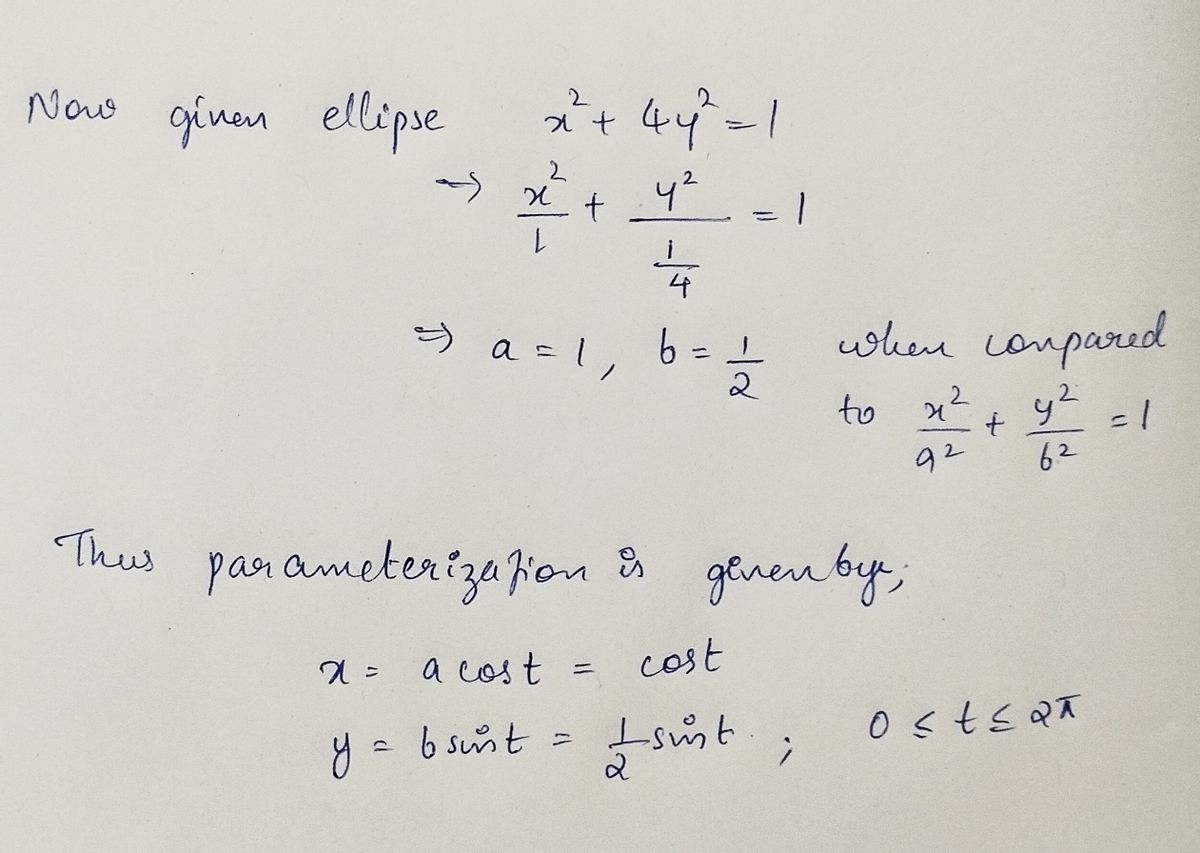 Now given ellipse x² + 4y² = 1
→ x²/1 + y²/(1/4) = 1
⇒ a = 1, b = 1/2 when compared
to x²/a² + y²/b² = 1
Thus parameterization is given by;
x = a cos t = cos t
y = b sin t = 1/2 sin t ; 0 ≤ t ≤ 2π